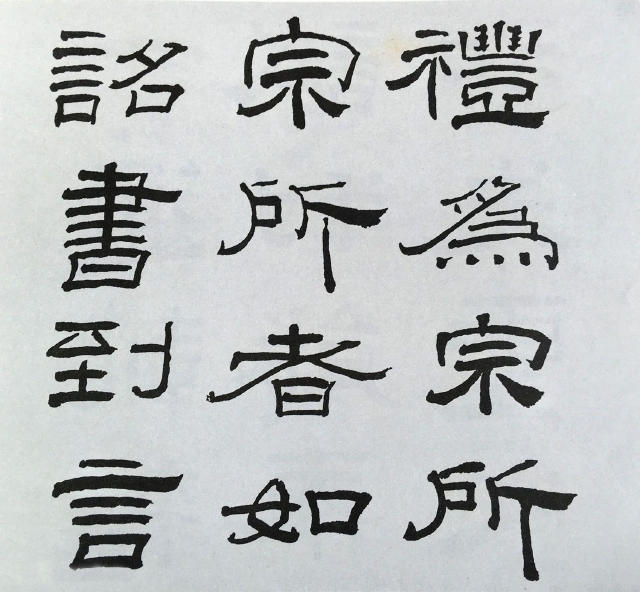 禮為宗所
宗所者如
詔書到言